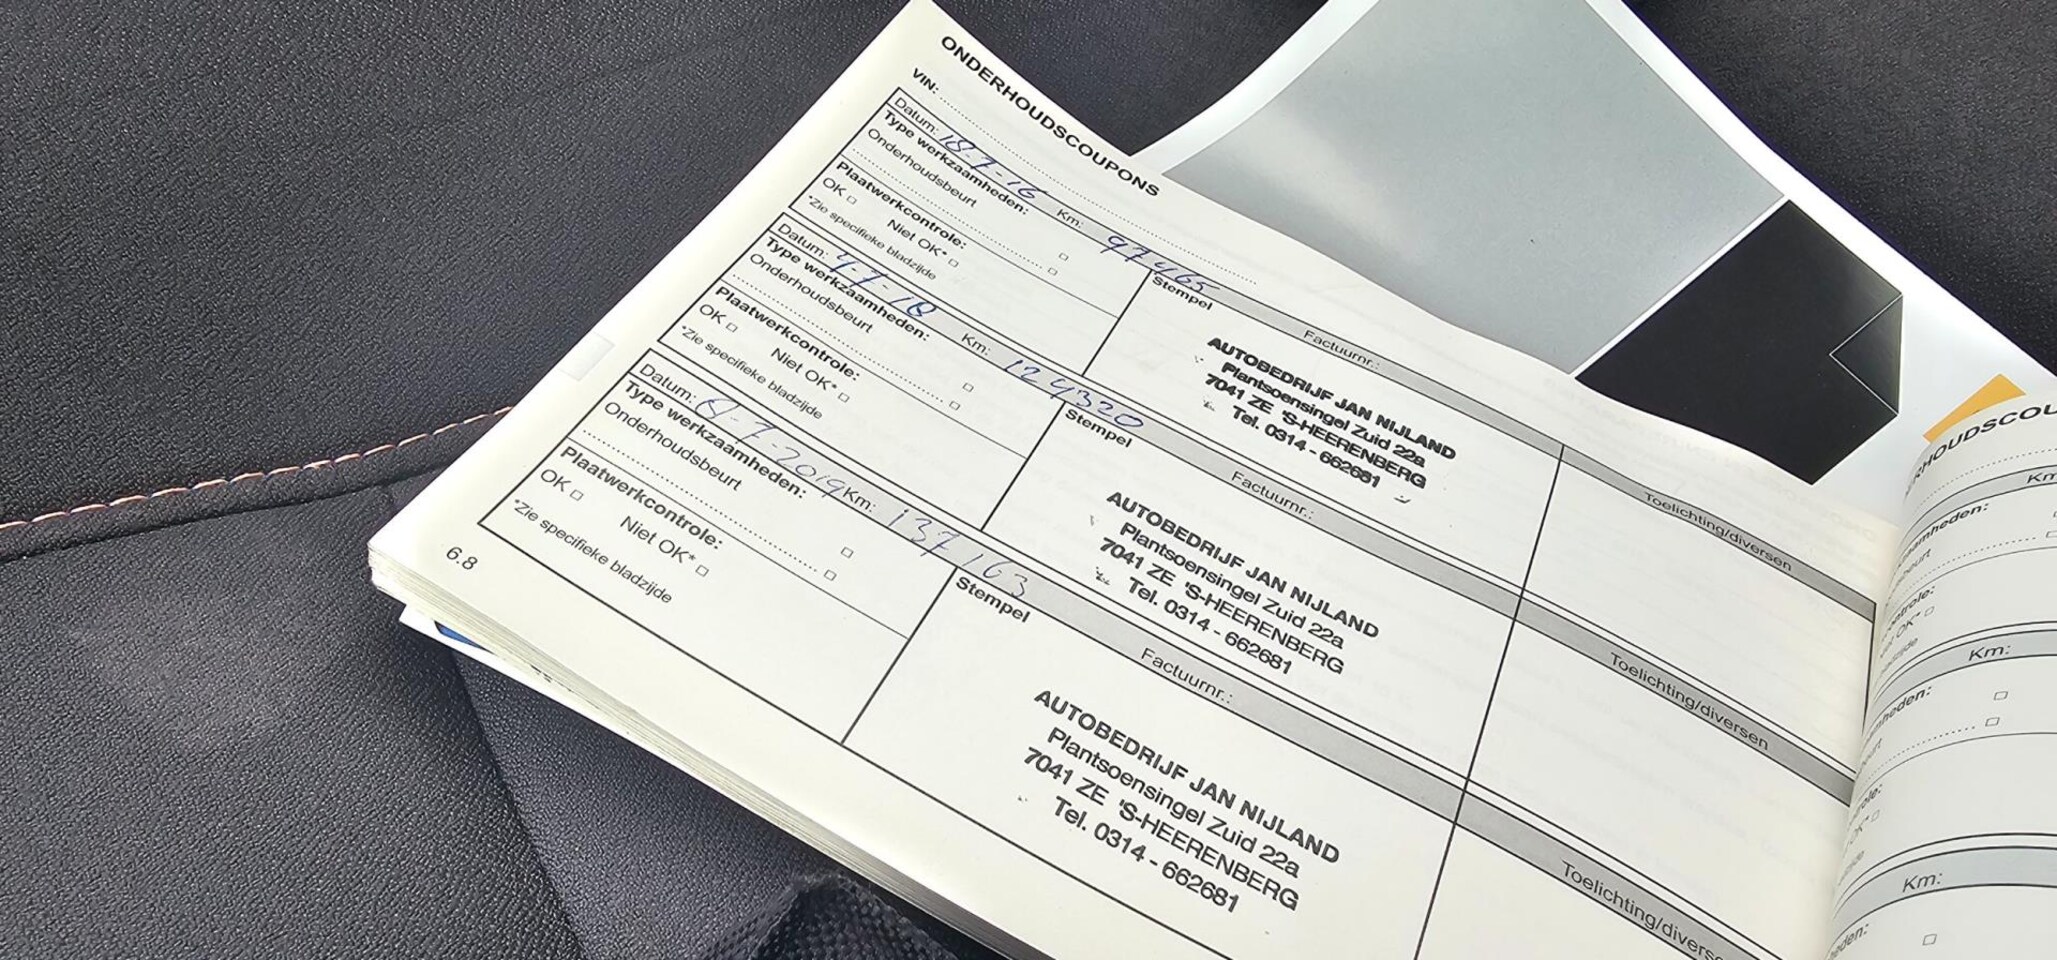 ONDERHOUDSCOUPONS
VIN:
Datum: 18-7-16 Km: 97465
Type werkzaamheden:
Onderhoudsbeurt
Plaatwerkcontrole:
OK Niet OK*
*Zie specifieke bladzijde
Stempel
Factuurnr.:
AUTOBEDRIJF JAN NIJLAND
Plantsoensingel Zuid 22a
7041 ZE 'S-HEERENBERG
Tel. 0314 - 662681
Toelichting/diversen
Datum: 4-7-18 Km: 124320
Type werkzaamheden:
Onderhoudsbeurt
Plaatwerkcontrole:
OK Niet OK*
*Zie specifieke bladzijde
Stempel
Factuurnr.:
AUTOBEDRIJF JAN NIJLAND
Plantsoensingel Zuid 22a
7041 ZE 'S-HEERENBERG
Tel. 0314 - 662681
Toelichting/diversen
Datum: 8-7-2019 Km: 137163
Type werkzaamheden:
Onderhoudsbeurt
Plaatwerkcontrole:
OK Niet OK*
*Zie specifieke bladzijde
Stempel
Factuurnr.:
AUTOBEDRIJF JAN NIJLAND
Plantsoensingel Zuid 22a
7041 ZE 'S-HEERENBERG
Tel. 0314 - 662681
Toelichting/diverse
6.8
HOUDSCOU
Km
Km:
Km: